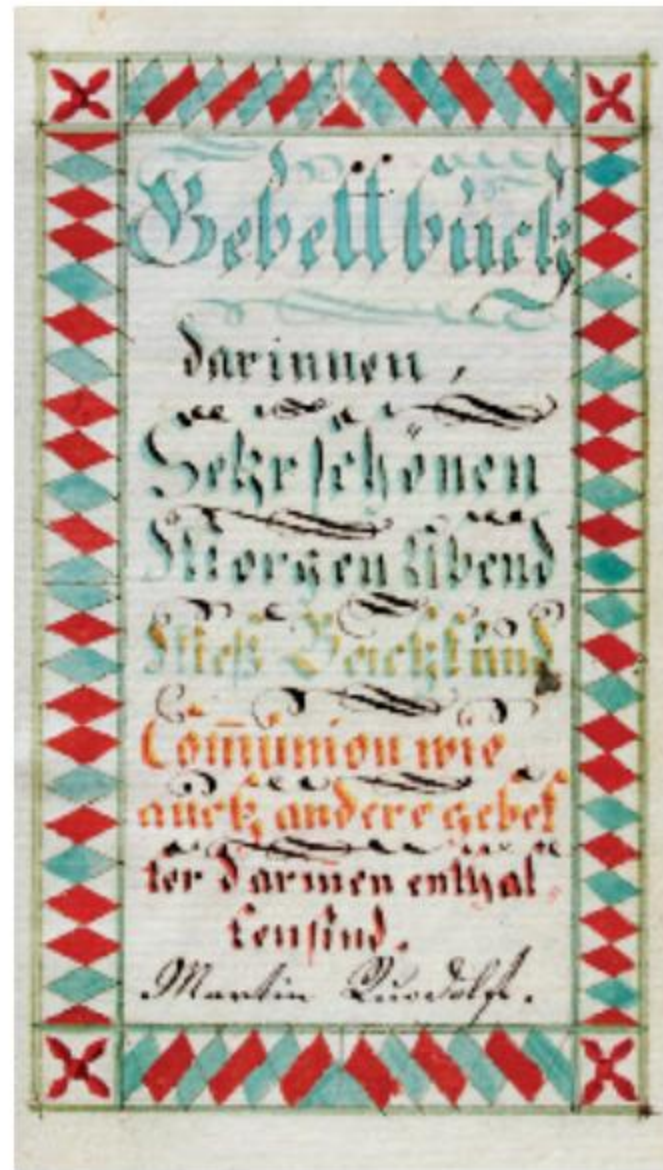 Gebett büch
darinnen,
Sehr schönen
Morgen Abend
Meß Beicht und
Com̅ünion wie
aüch andere gebet
ter darinen enthal
ten sind.
Martin Ruodolff.